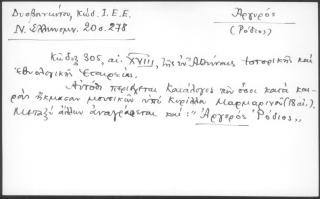 Δυοβουνιώτου, Κώδ. Ι.Ε.Ε.
Ν. Ἑλληνομν. 20 σ. 278
Ἀργυρός
(Ῥόδιος)
Κῶδιξ 305, αἰ. XVIII, τῆς ἐν Ἀθήναις Ἱστορικῆς καὶ
Ἐθνολογικῆς Ἑταιρείας.
Αὐτόθι περιέχεται Κατάλογος τῶν ὅσοι κατὰ και-
ρὸν ἤκμασαν μουσικῶν ὑπὸ Κυρίλλου Μαρμαρινοῦ (18 αἰ.).
Μεταξὺ ἄλλων ἀναγράφεται καί: "Ἀργυρὸς Ῥόδιος„